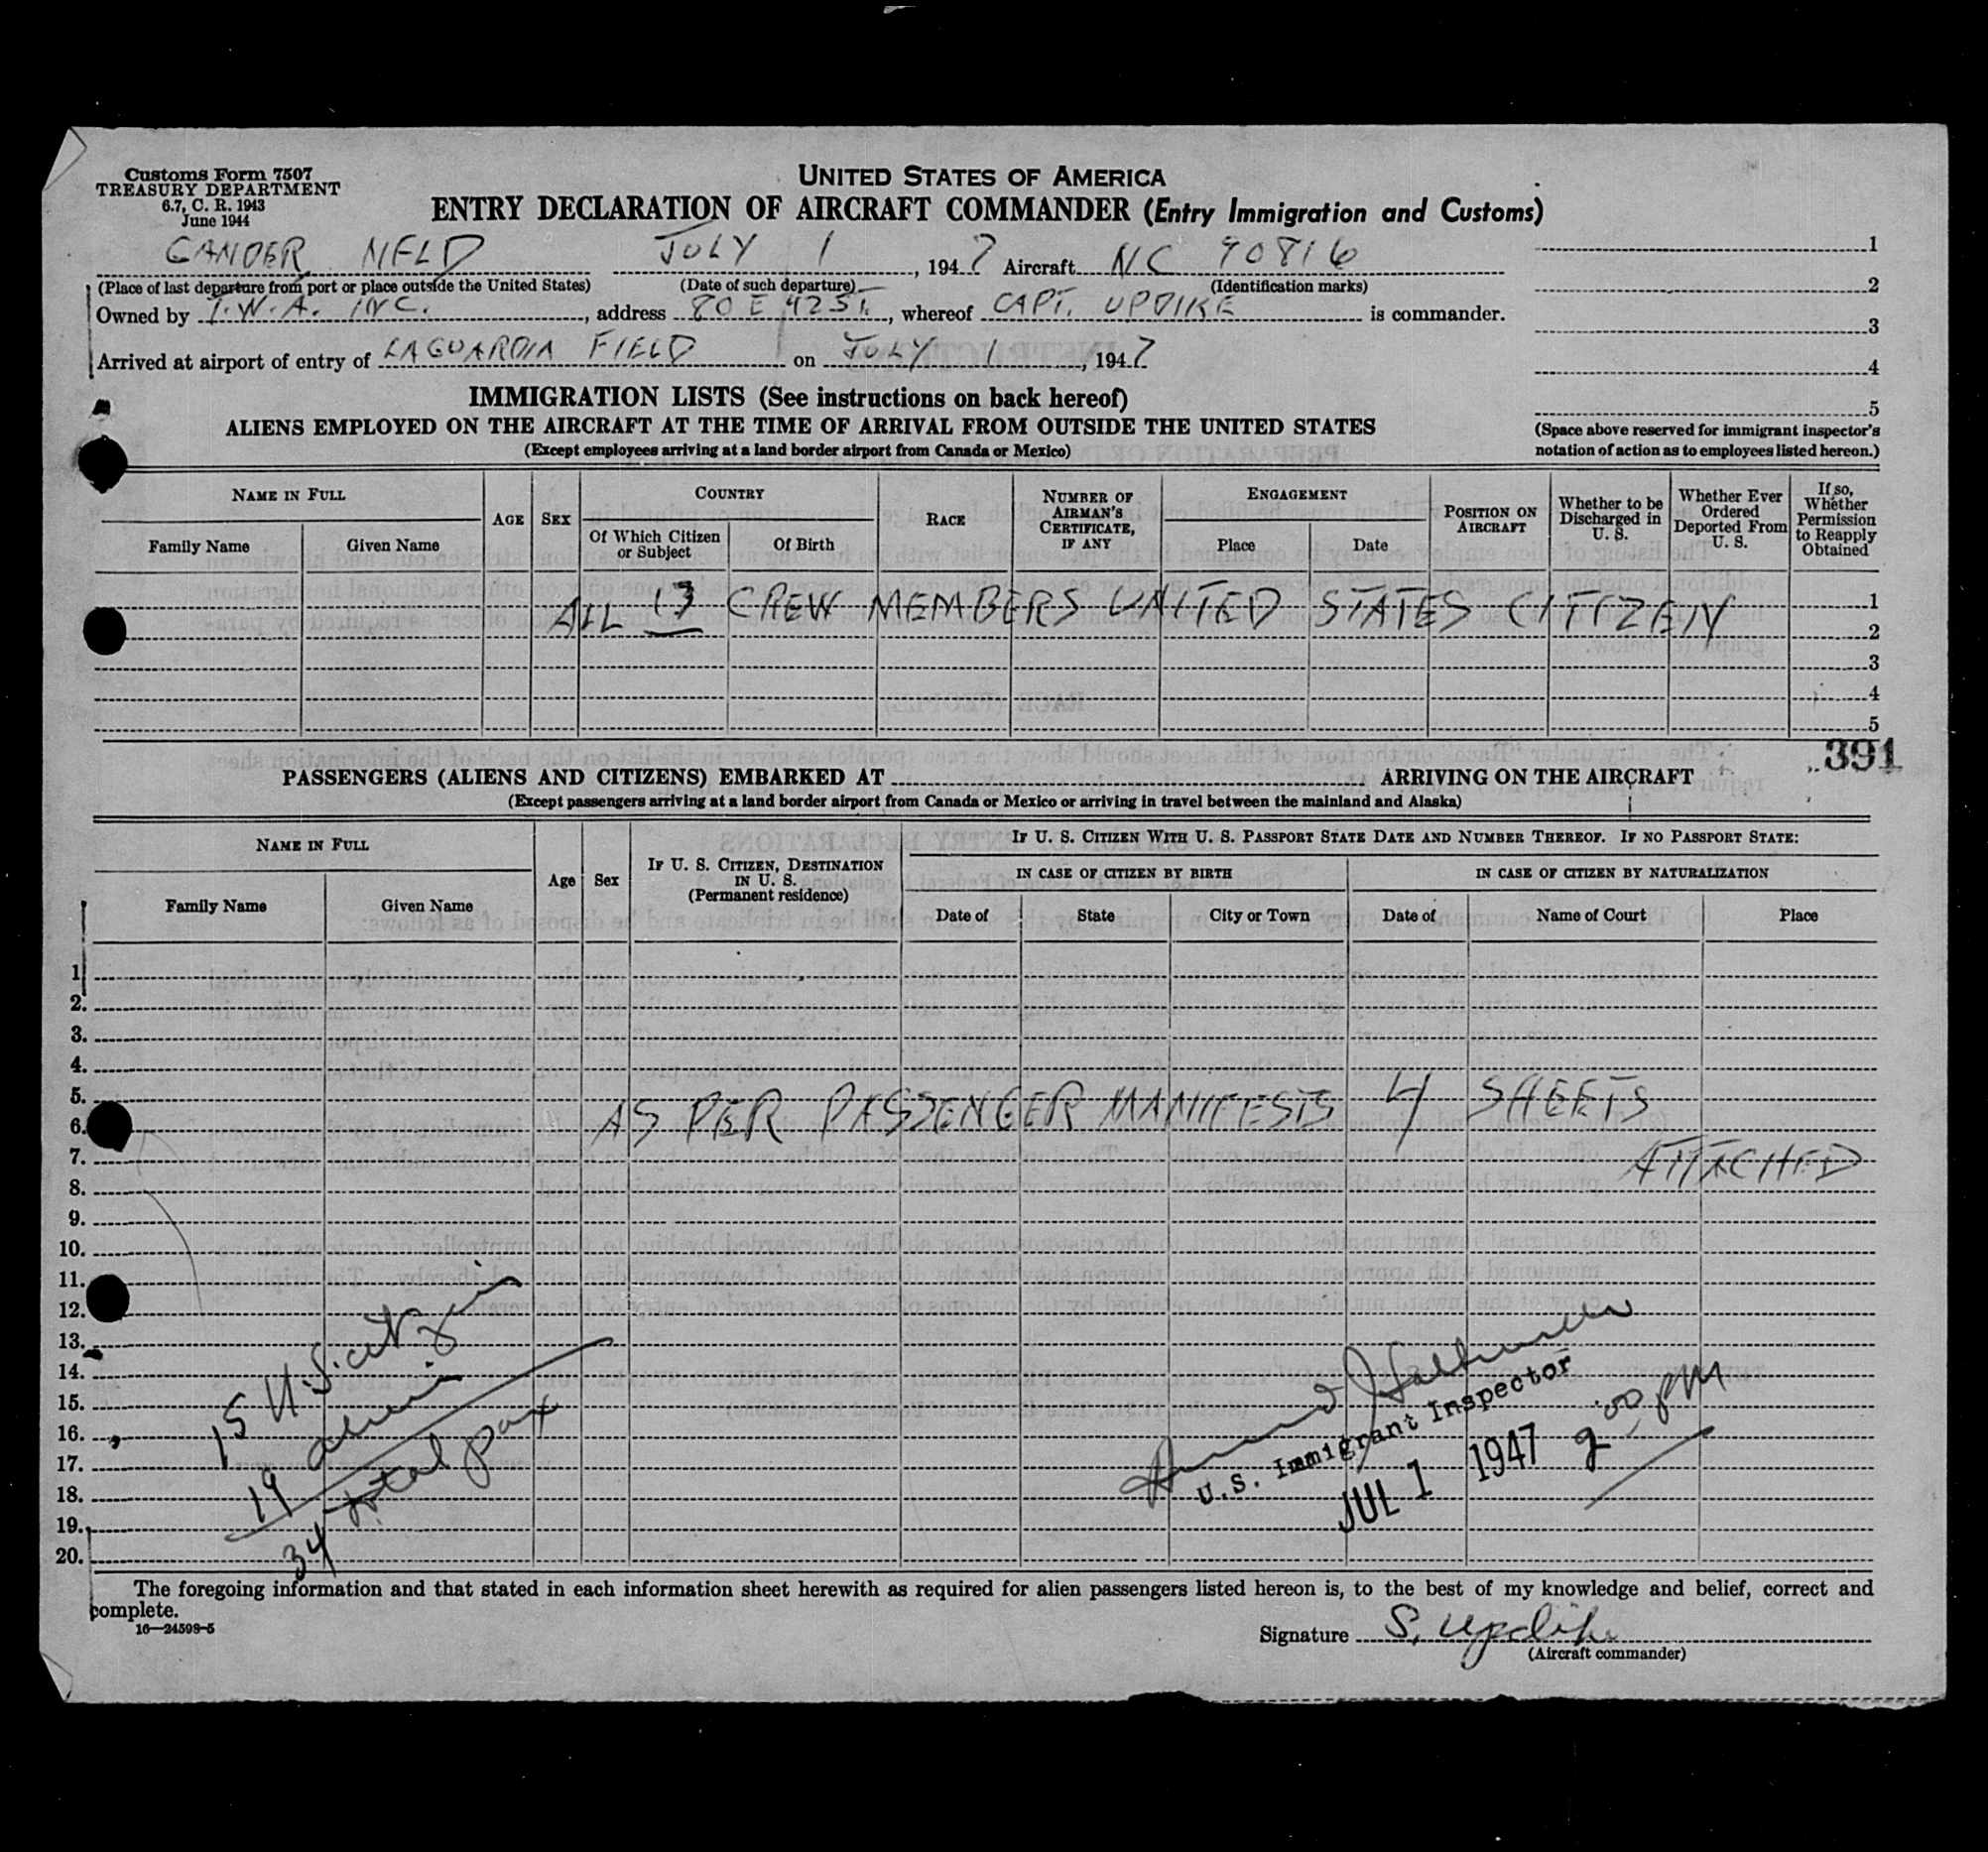 Customs Form 7507
TREASURY DEPARTMENT
6.7, C. R. 1943
June 1944
UNITED STATES OF AMERICA
ENTRY DECLARATION OF AIRCRAFT COMMANDER (Entry Immigration and Customs)
GANDER NFLD JULY 1, 1947 Aircraft NC 90816
(Place of last departure from port or place outside the United States) (Date of such departure) (Identification marks)
Owned by T.W.A. INC., address 80 E 42 ST., whereof CAPT. UPDIKE is commander.
Arrived at airport of entry of LAGUARDIA FIELD on JULY 1, 1947
1
2
3
4
5
(Space above reserved for immigrant inspector's
notation of action as to employees listed hereon.)
IMMIGRATION LISTS (See instructions on back hereof)
ALIENS EMPLOYED ON THE AIRCRAFT AT THE TIME OF ARRIVAL FROM OUTSIDE THE UNITED STATES
(Except employees arriving at a land border airport from Canada or Mexico)
NAME IN FULL
Family Name Given Name
AGE
SEX
COUNTRY
Of Which Citizen
or Subject
Of Birth
RACE
NUMBER OF
AIRMAN'S
CERTIFICATE,
IF ANY
ENGAGEMENT
Place Date
POSITION ON
AIRCRAFT
Whether to be
Discharged in
U. S.
Whether Ever
Ordered
Deported From
U. S.
If so,
Whether
Permission
to Reapply
Obtained
ALL 13 CREW MEMBERS UNITED STATES CITIZEN
1
2
3
4
5
391
PASSENGERS (ALIENS AND CITIZENS) EMBARKED AT ARRIVING ON THE AIRCRAFT
(Except passengers arriving at a land border airport from Canada or Mexico or arriving in travel between the mainland and Alaska)
NAME IN FULL
Family Name Given Name
Age
Sex
IF U. S. CITIZEN, DESTINATION
IN U. S.
(Permanent residence)
IF U. S. CITIZEN WITH U. S. PASSPORT STATE DATE AND NUMBER THEREOF. IF NO PASSPORT STATE:
IN CASE OF CITIZEN BY BIRTH
IN CASE OF CITIZEN BY NATURALIZATION
Date of State City or Town
Date of Name of Court Place
1
2.
3.
4.
5.
6.
AS PER PASSENGER MANIFESTS 4 SHEETS
7.
ATTACHED
8.
9.
10.
11.
12.
13.
14.
15.
16.
17.
18.
19.
20.
15 U.S. citizens
19 aliens
34 total pax
U.S. Immigrant Inspector
JUL 1 1947 2:00 PM
The foregoing information and that stated in each information sheet herewith as required for alien passengers listed hereon is, to the best of my knowledge and belief, correct and
complete.
16—24598-5
Signature S. Updike
(Aircraft commander)